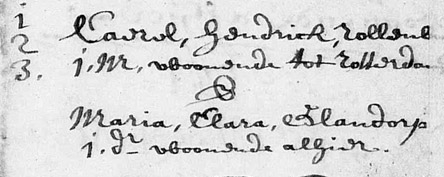 1 Carel, Hendrick, Rollent
2
3. j.M, woonende tot Rotterdam
&
Maria, Clara, Elandorp
j. dr woonende alhier.